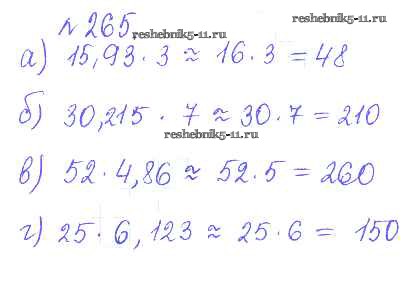 №265
reshebnik5-11.ru
reshebnik5-11.ru
а) 15,93 · 3 ≈ 16 · 3 = 48
б) 30,215 · 7 ≈ 30 · 7 = 210
reshebnik5-11.ru
в) 52 · 4,86 ≈ 52 · 5 = 260
г) 25 · 6,123 ≈ 25 · 6 = 150